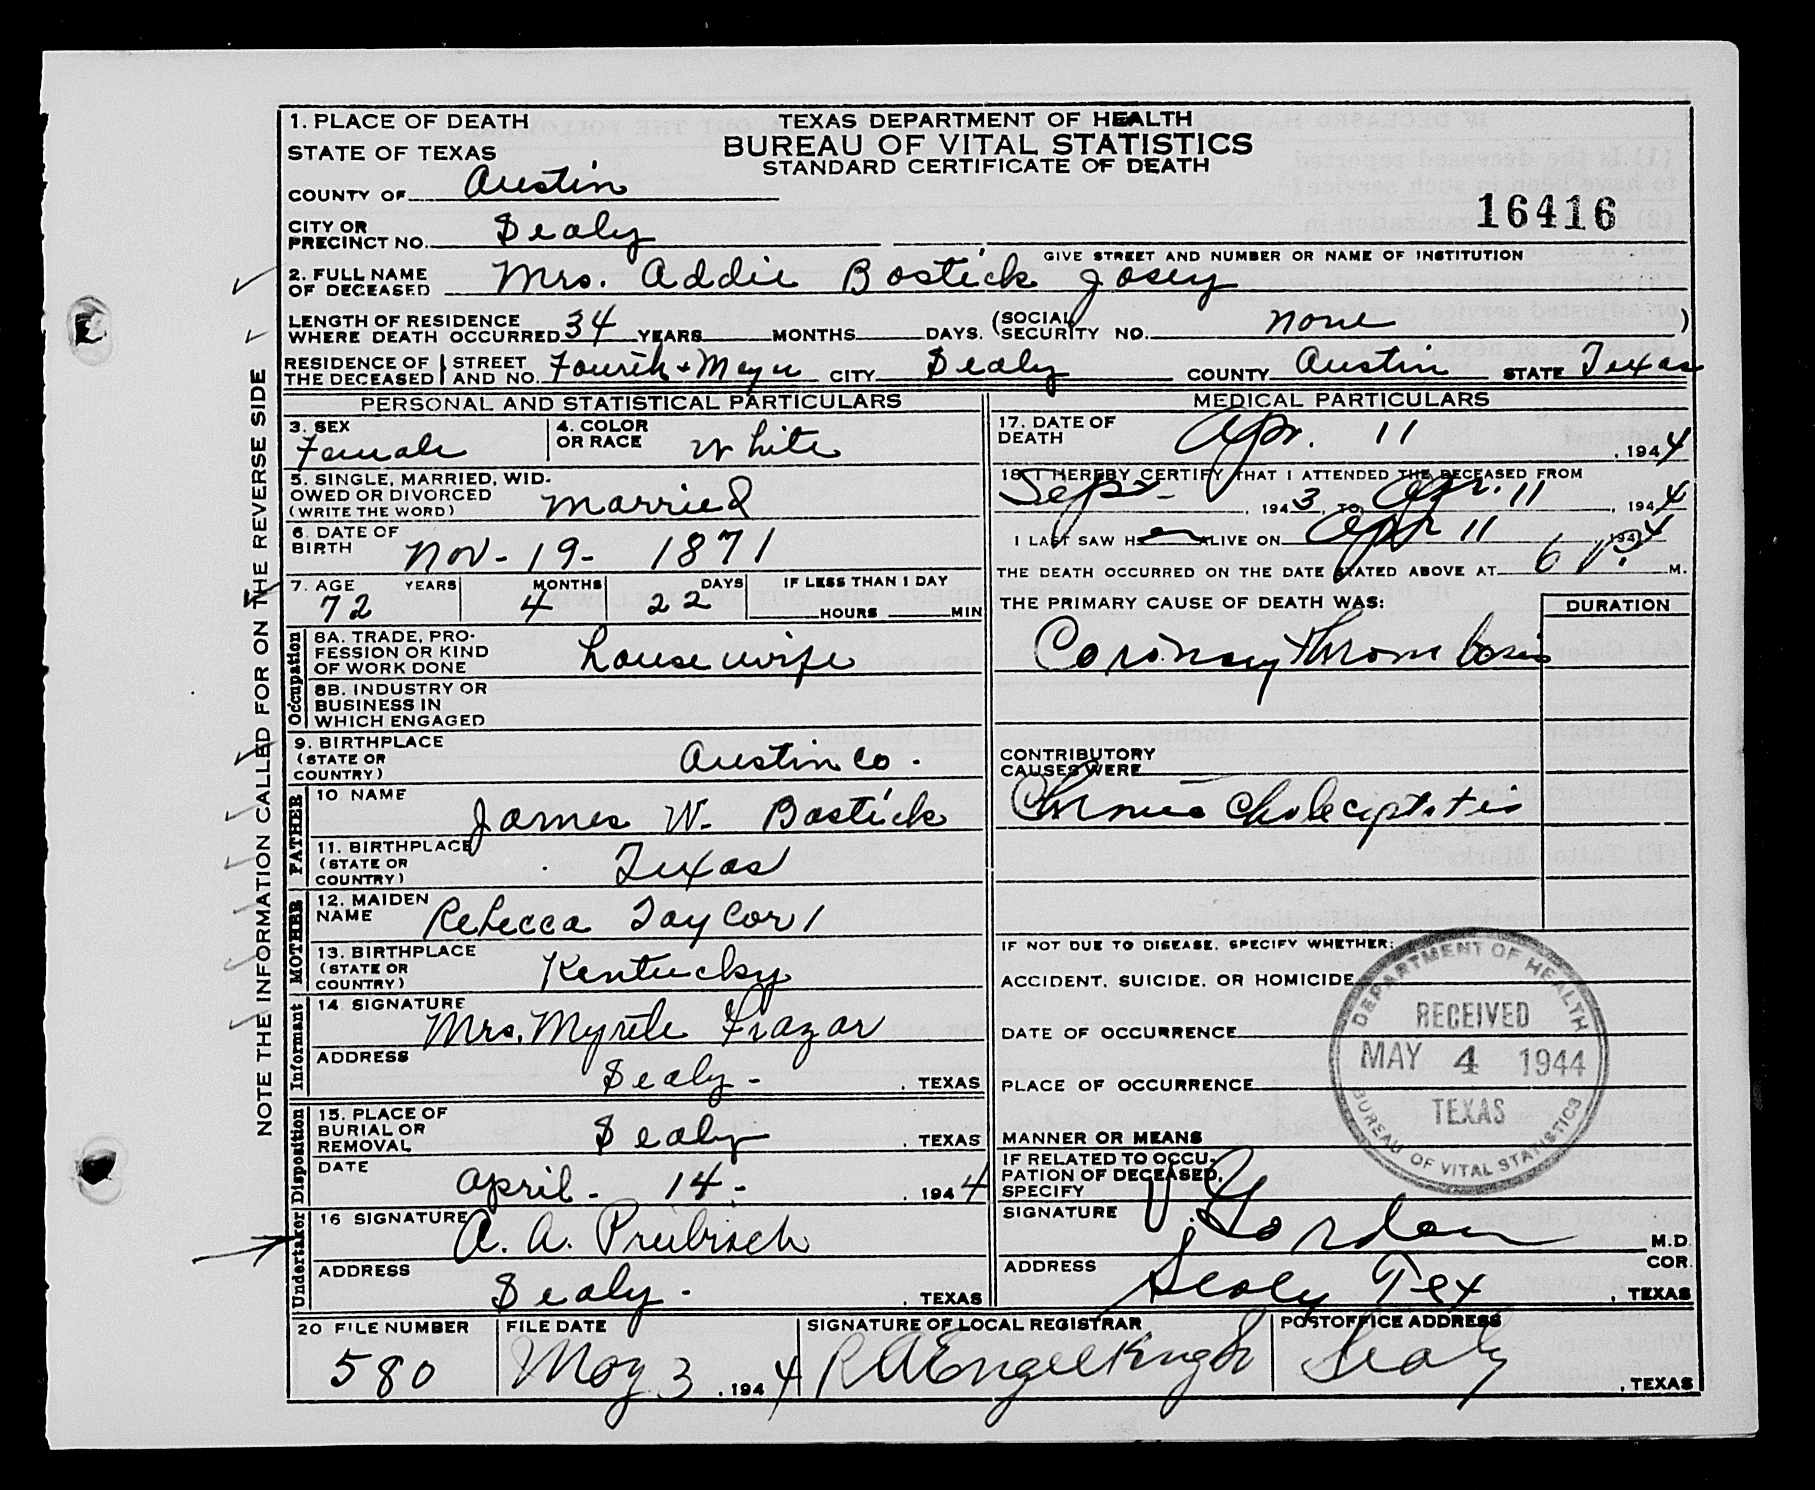 1. PLACE OF DEATH
TEXAS DEPARTMENT OF HEALTH
BUREAU OF VITAL STATISTICS
STANDARD CERTIFICATE OF DEATH
STATE OF TEXAS
COUNTY OF Austin
16416
CITY OR
PRECINCT NO. Sealy
GIVE STREET AND NUMBER OR NAME OF INSTITUTION
2. FULL NAME
OF DECEASED Mrs. Addie Bostick Josey
LENGTH OF RESIDENCE
WHERE DEATH OCCURRED 34 YEARS MONTHS DAYS. (SOCIAL SECURITY NO. none )
RESIDENCE OF THE DECEASED } STREET AND NO. Fourth + Meyer CITY Sealy COUNTY Austin STATE Texas
PERSONAL AND STATISTICAL PARTICULARS
3. SEX Female
4. COLOR OR RACE White
5. SINGLE, MARRIED, WID-
OWED OR DIVORCED
(WRITE THE WORD) married
6. DATE OF
BIRTH Nov - 19 - 1871
7. AGE YEARS MONTHS DAYS IF LESS THAN 1 DAY
72 4 22 HOURS MIN
Occupation
8A. TRADE, PRO-
FESSION OR KIND
OF WORK DONE housewife
8B. INDUSTRY OR
BUSINESS IN
WHICH ENGAGED
9. BIRTHPLACE
(STATE OR
COUNTRY) Austin Co.
FATHER
10 NAME James W. Bostick
11. BIRTHPLACE
(STATE OR
COUNTRY) Texas
MOTHER
12. MAIDEN
NAME Rebecca Taylor
13. BIRTHPLACE
(STATE OR
COUNTRY) Kentucky
Informant
14 SIGNATURE Mrs. Myrtle Frazar
ADDRESS Sealy - , TEXAS
Disposition
15. PLACE OF
BURIAL OR
REMOVAL Sealy , TEXAS
DATE April - 14 - , 1944
Undertaker
16 SIGNATURE A. A. Preibisch
ADDRESS Sealy. , TEXAS
MEDICAL PARTICULARS
17. DATE OF
DEATH Apr. 11 , 1944
18. I HEREBY CERTIFY THAT I ATTENDED THE DECEASED FROM
Sept - , 1943, TO Apr. 11 , 1944
I LAST SAW HER ALIVE ON Apr 11 , 1944
THE DEATH OCCURRED ON THE DATE STATED ABOVE AT 6 P. M.
THE PRIMARY CAUSE OF DEATH WAS: DURATION
Coronary thrombosis
CONTRIBUTORY
CAUSES WERE
Chronic Cholecystitis
IF NOT DUE TO DISEASE, SPECIFY WHETHER:
ACCIDENT, SUICIDE, OR HOMICIDE
DATE OF OCCURRENCE
PLACE OF OCCURRENCE
MANNER OR MEANS
IF RELATED TO OCCU-
PATION OF DECEASED,
SPECIFY
DEPARTMENT OF HEALTH
RECEIVED
MAY 4 1944
TEXAS
BUREAU OF VITAL STATISTICS
SIGNATURE Gordon M.D.
COR.
ADDRESS Sealy Tex , TEXAS
20 FILE NUMBER 580
FILE DATE May 3 , 1944
SIGNATURE OF LOCAL REGISTRAR R A Engelking
POSTOFFICE ADDRESS Sealy , TEXAS
NOTE THE INFORMATION CALLED FOR ON THE REVERSE SIDE